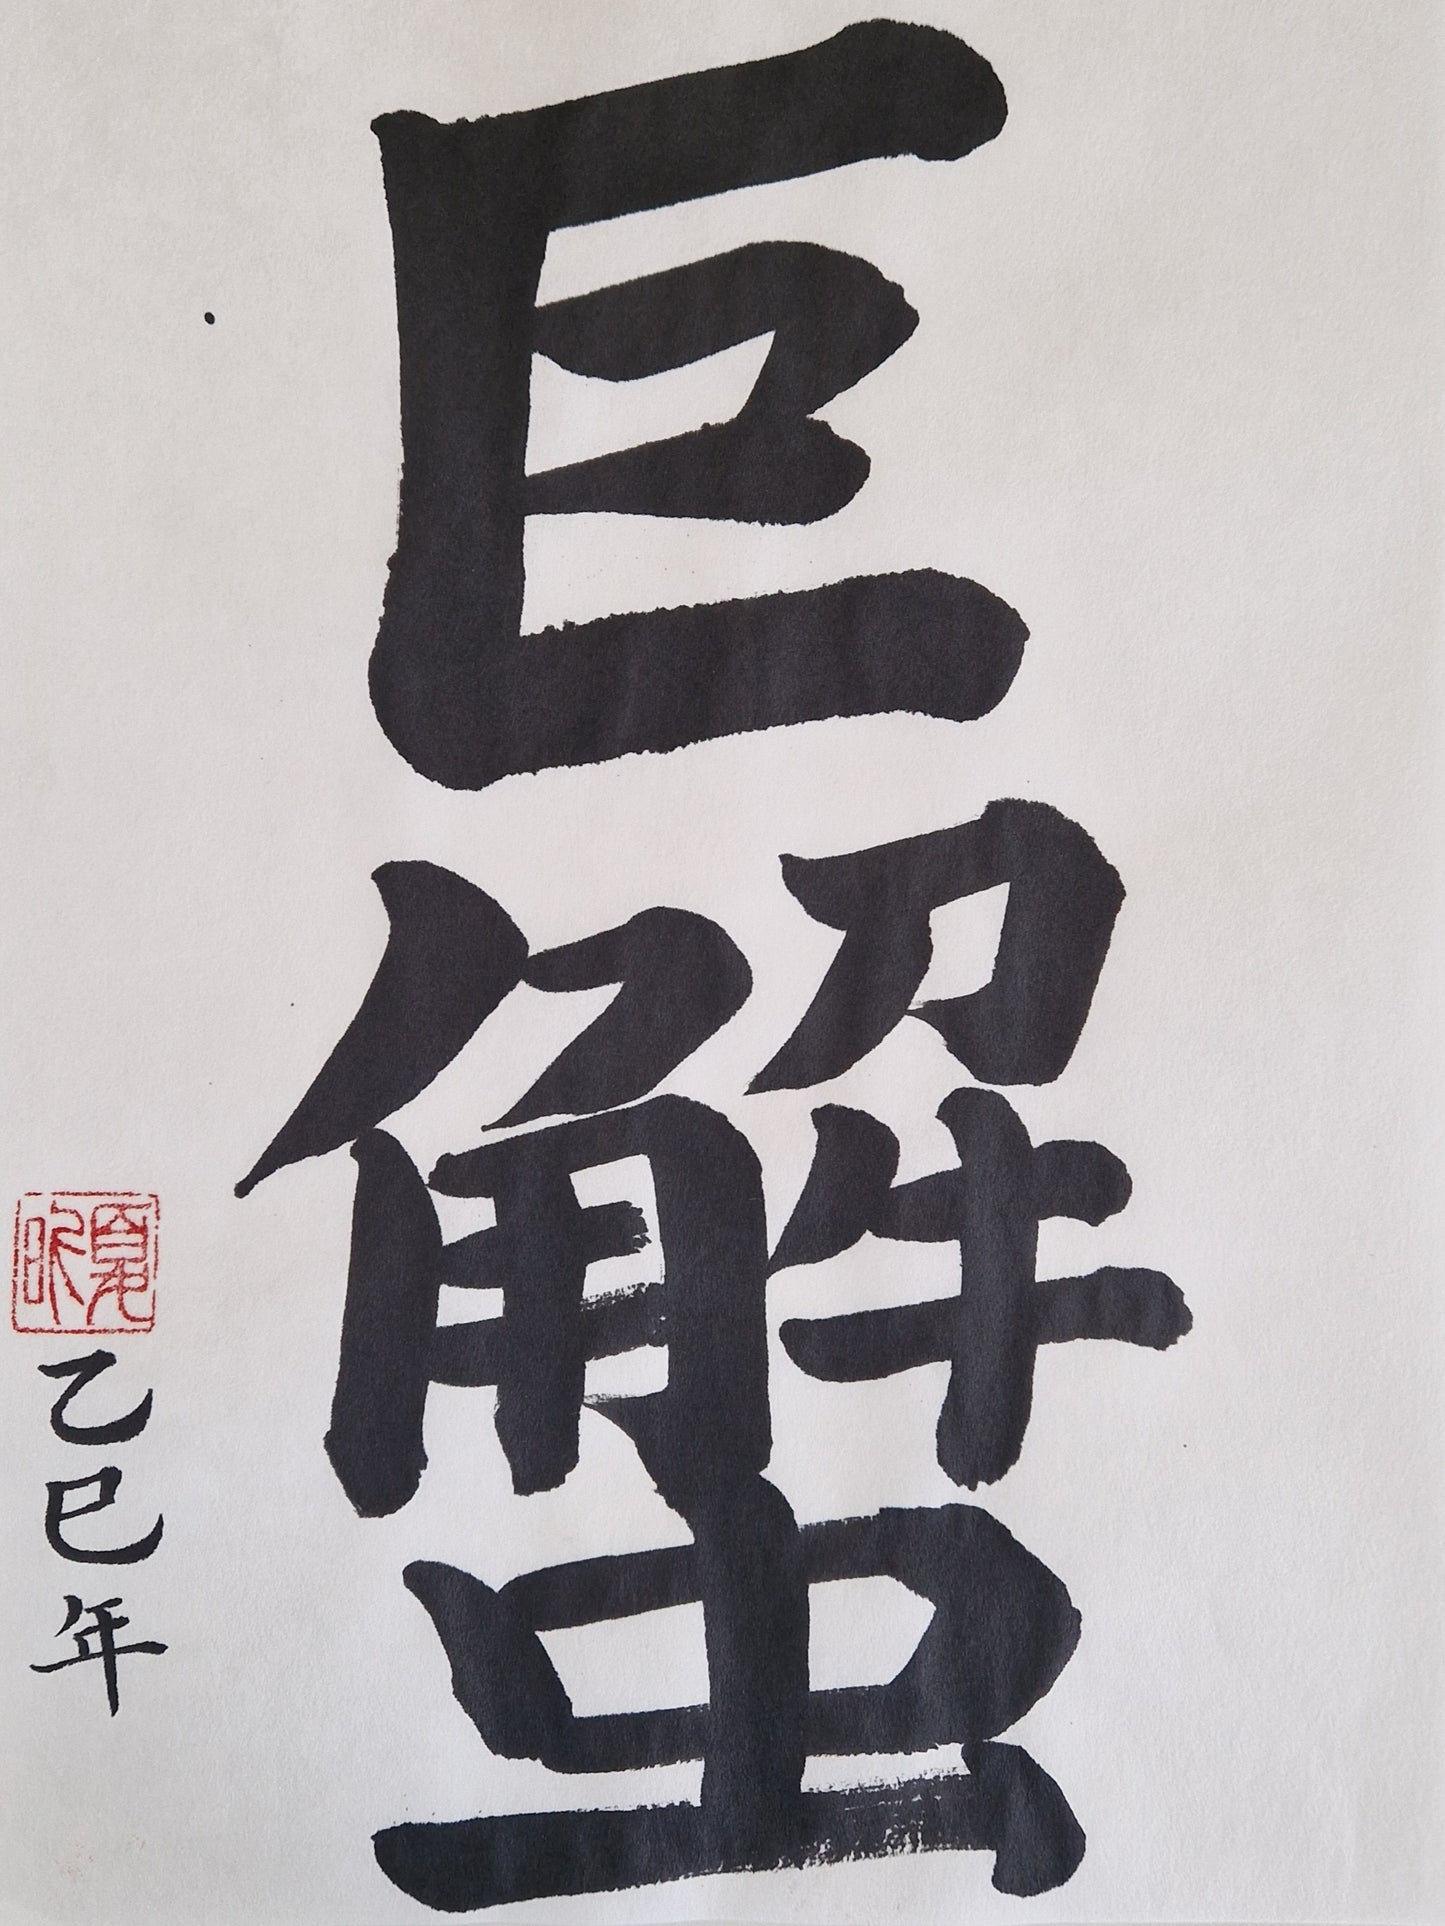 巨蟹
乙巳年